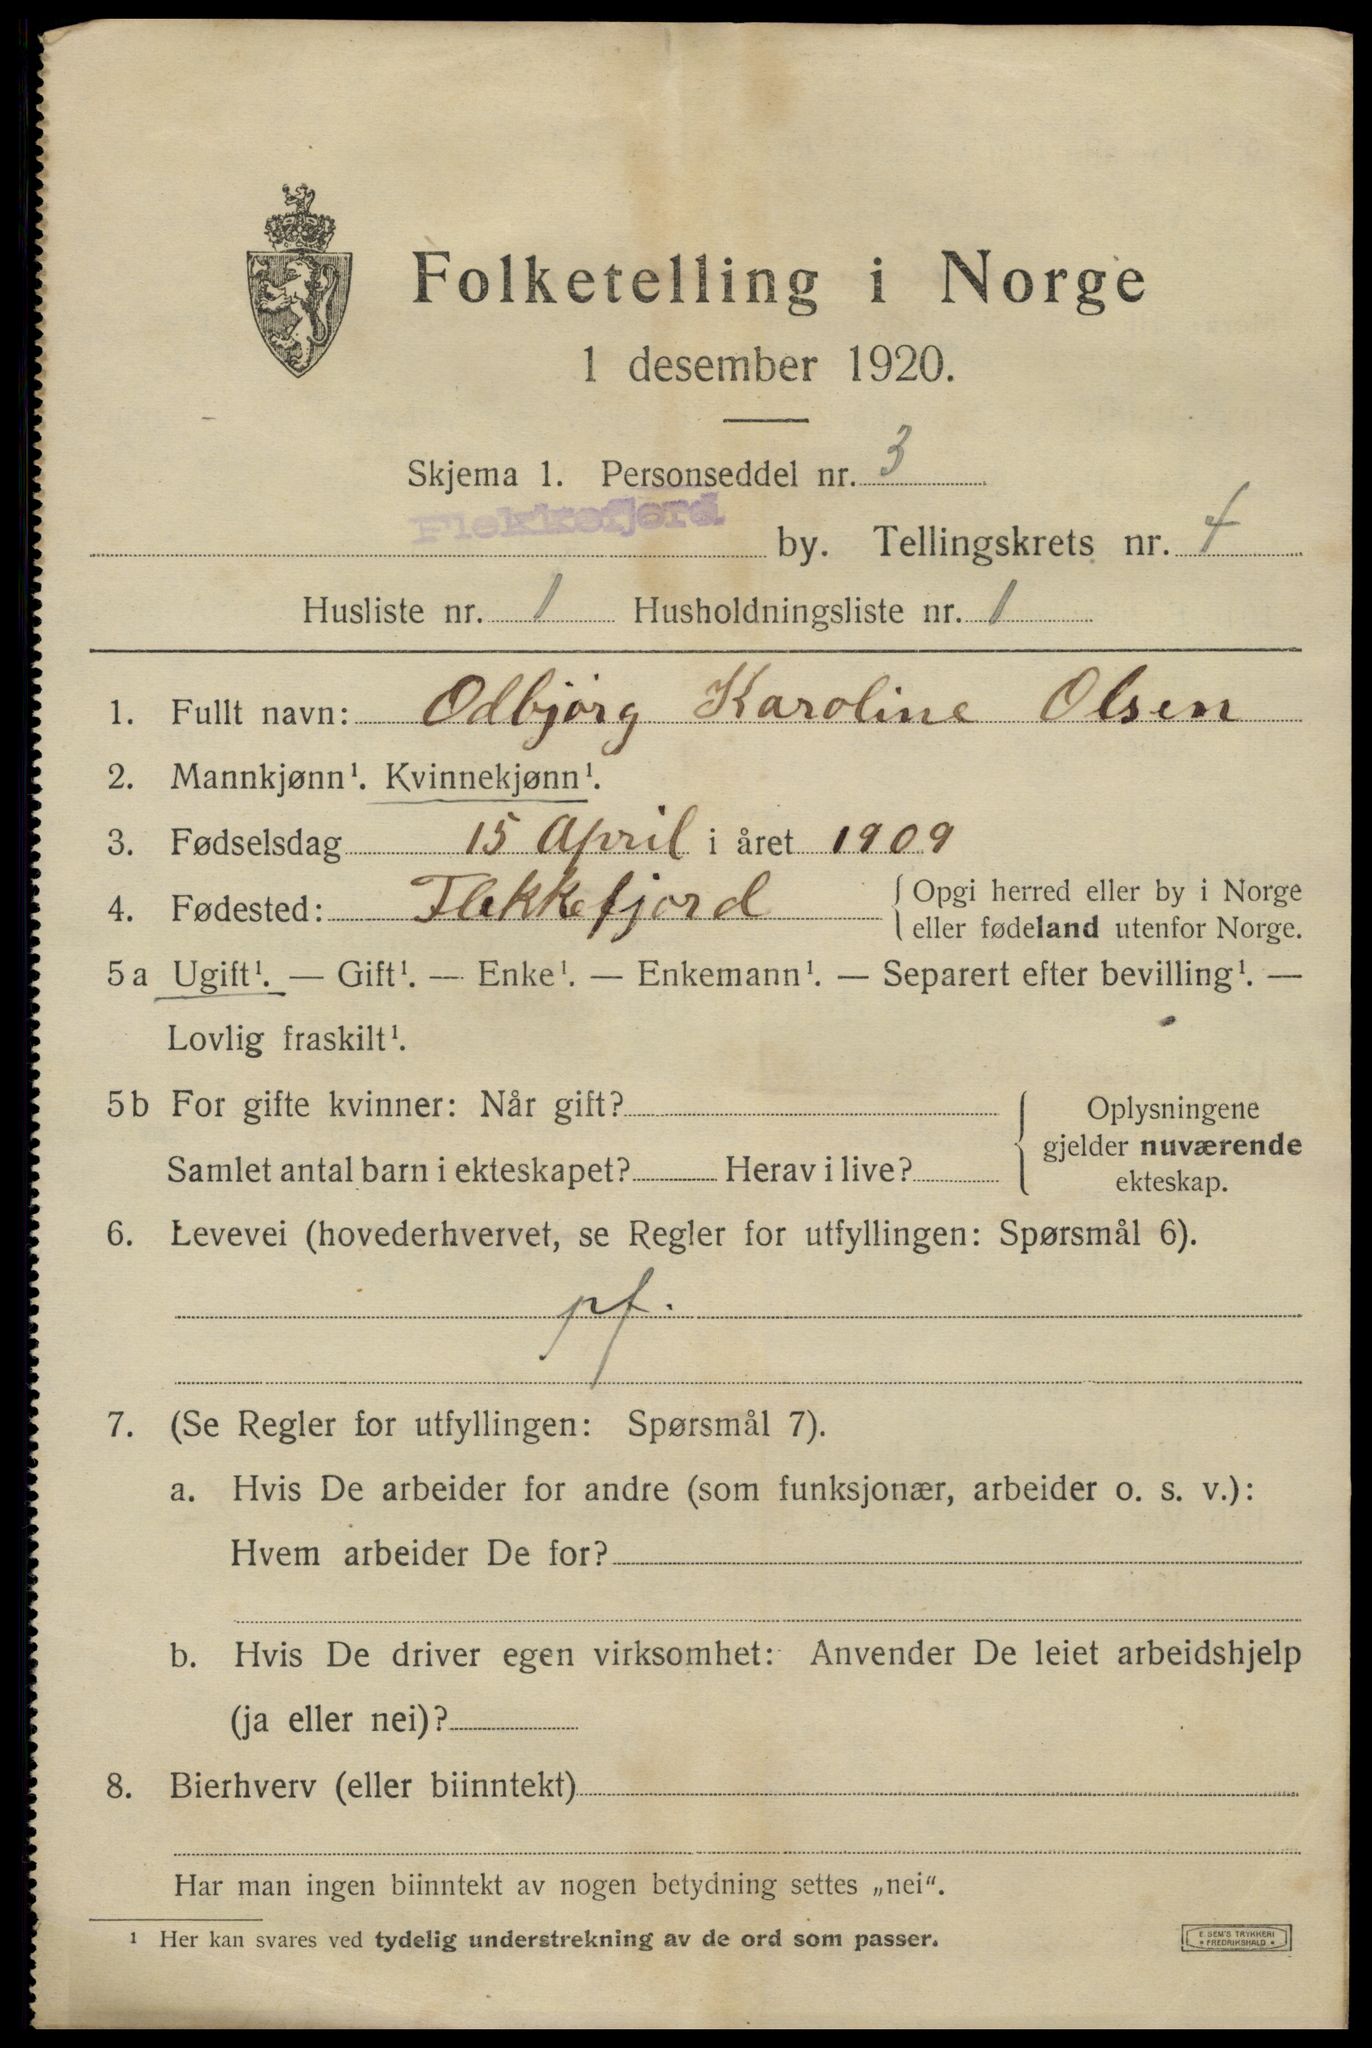 Folketelling i Norge
1 desember 1920.
Skjema 1. Personseddel nr. 3
Flekkefjord by. Tellingskrets nr. 4
Husliste nr. 1 Husholdningsliste nr. 1
1. Fullt navn: Odbjørg Karoline Olsen
2. Mannkjønn¹. Kvinnekjønn¹.
3. Fødselsdag 15 April i året 1909
4. Fødested: Flekkefjord { Opgi herred eller by i Norge
eller fødeland utenfor Norge.
5a Ugift¹. — Gift¹. — Enke¹. — Enkemann¹. — Separert efter bevilling¹. —
Lovlig fraskilt¹.
5b For gifte kvinner: Når gift? { Oplysningene
gjelder nuværende
Samlet antal barn i ekteskapet? Herav i live?
ekteskap.
6. Levevei (hovederhvervet, se Regler for utfyllingen: Spørsmål 6).
pf.
7. (Se Regler for utfyllingen: Spørsmål 7).
a. Hvis De arbeider for andre (som funksjonær, arbeider o. s. v.):
Hvem arbeider De for?
b. Hvis De driver egen virksomhet: Anvender De leiet arbeidshjelp
(ja eller nei)?
8. Bierhverv (eller biinntekt)
Har man ingen biinntekt av nogen betydning settes „nei“.
¹ Her kan svares ved tydelig understrekning av de ord som passer.
E. SEM'S TRYKKERI
* FREDRIKSHALD *